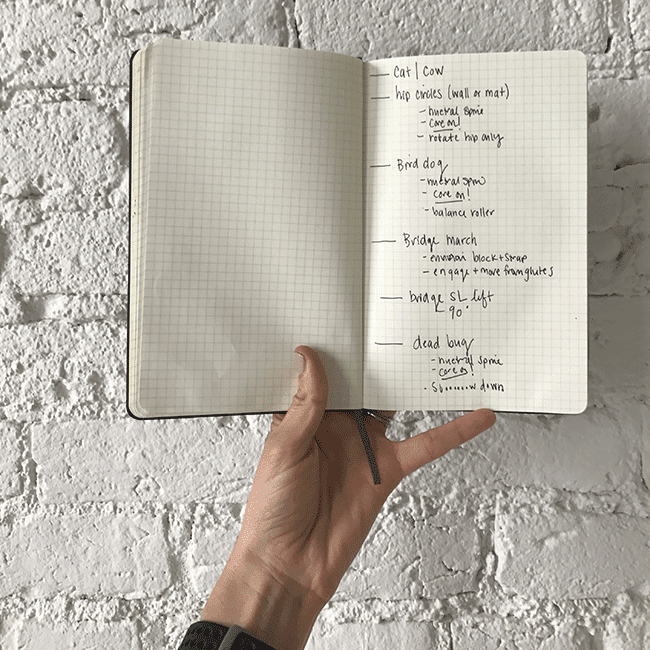 — Cat | Cow
— hip circles (wall or mat)
- nuetral spine
- core on!
- rotate hip only
— Bird dog
- nuetral spine
- core on!
- balance roller
— Bridge march
- envision block + strap
- engage + move from glutes
— bridge SL lift
- 90°
— dead bug
- nuetral spine
- core on!
- Sloooooow down